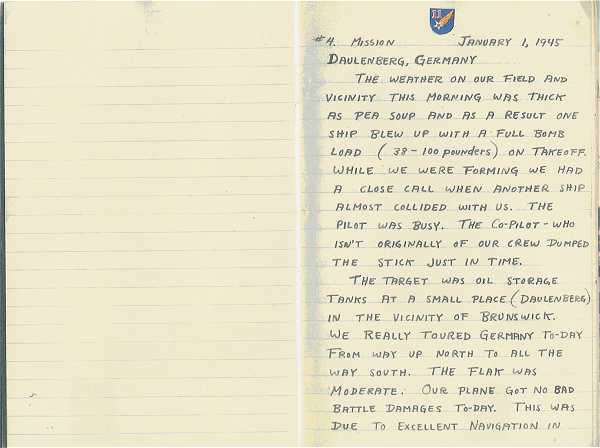 #4. Mission January 1, 1945
Daulenberg, Germany
The weather on our field and
vicinity this morning was thick
as pea soup and as a result one
ship blew up with a full bomb
load (38-100 pounders) on takeoff.
While we were forming we had
a close call when another ship
almost collided with us. The
pilot was busy. The Co-Pilot - who
isn't originally of our crew dumped
the stick just in time.
The target was oil storage
tanks at a small place (Daulenberg)
in the vicinity of Brunswick.
We really toured Germany to-day
from way up north to all the
way south. The flak was
moderate. Our plane got no bad
battle damages to-day. This was
due to excellent navigation in